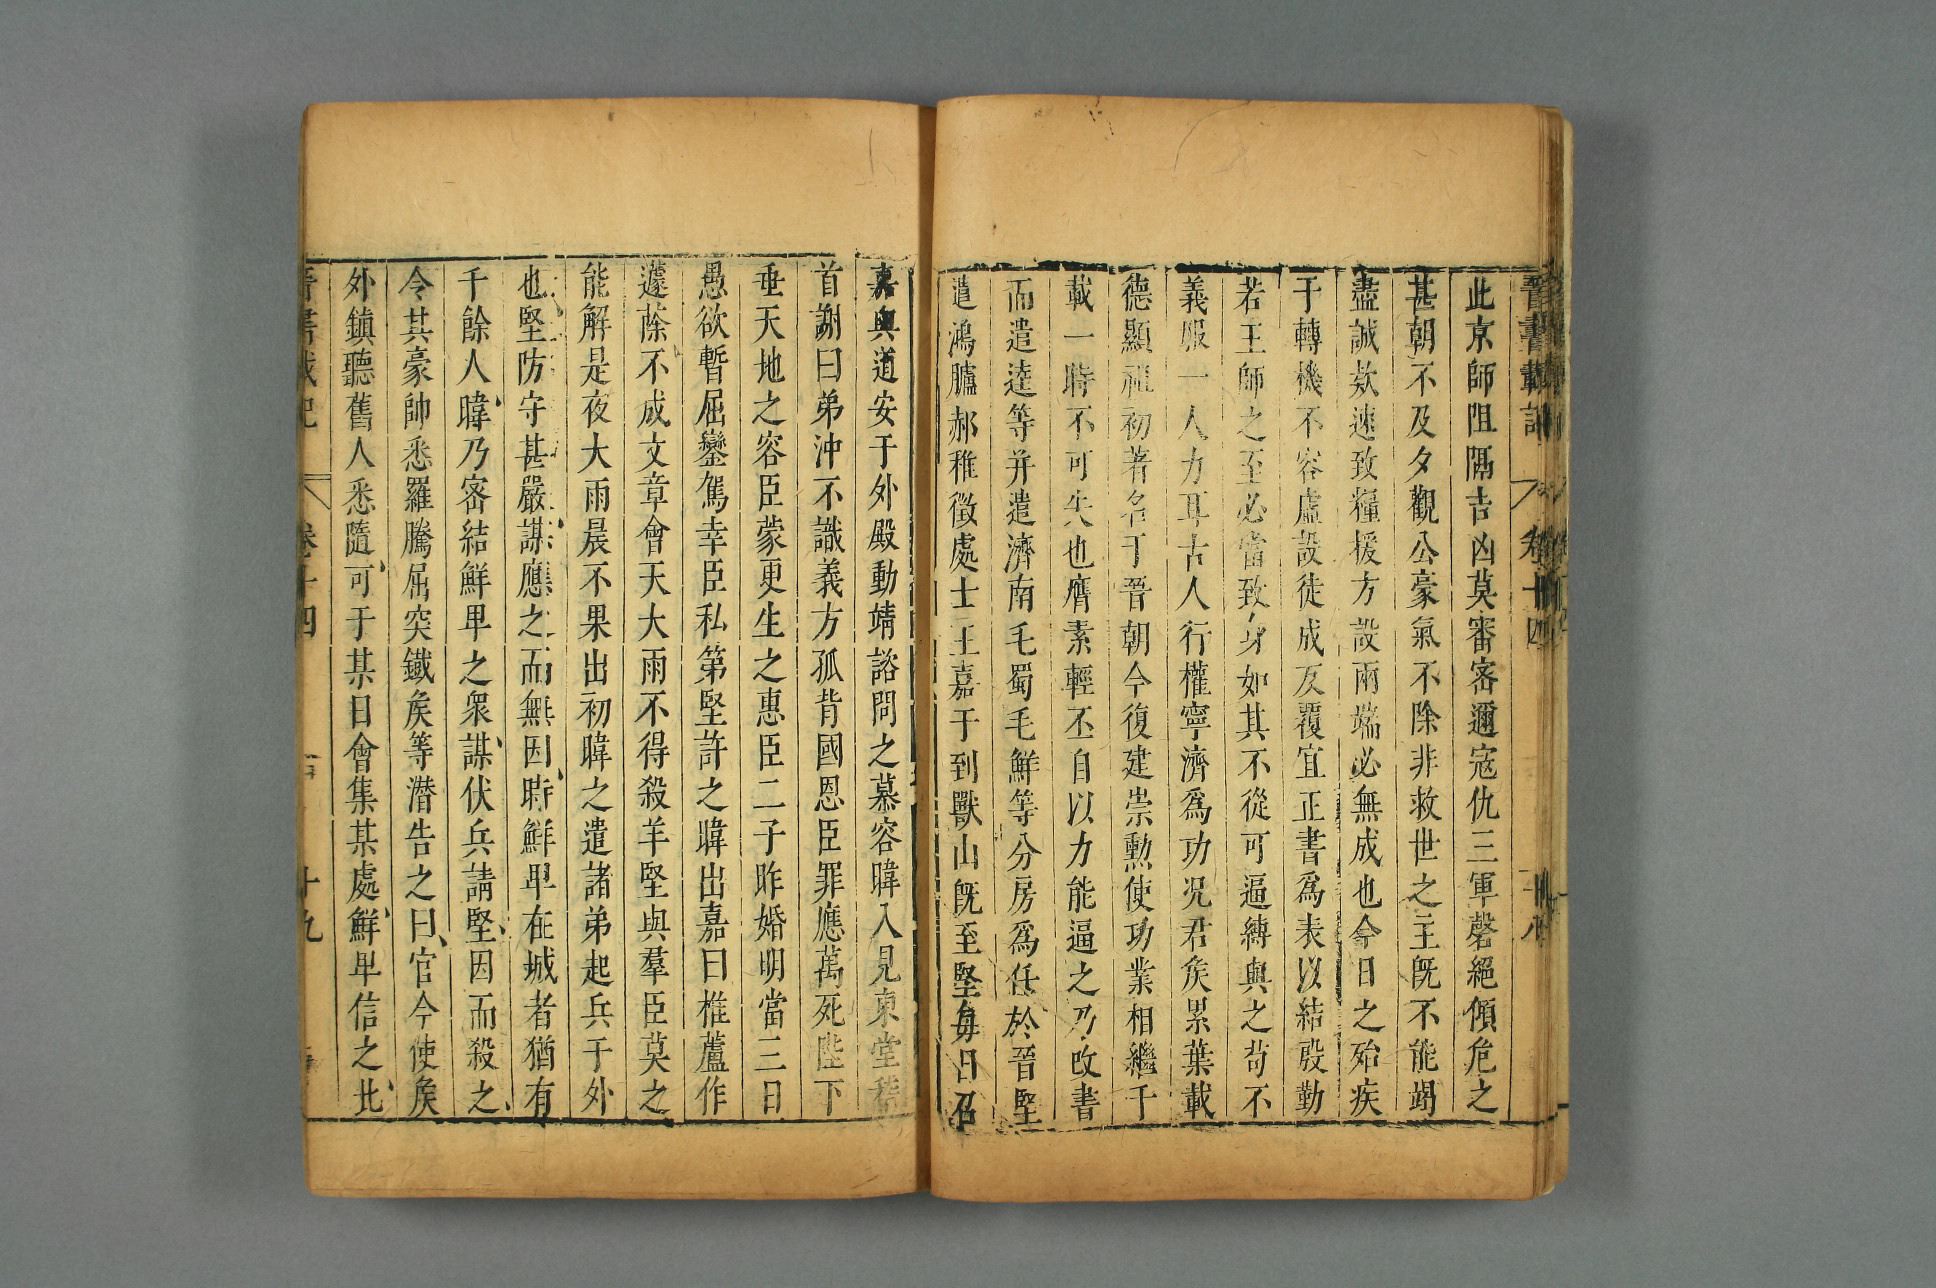 晉書載記 卷十四 十八
此京師阻隔吉凶莫審密邇寇仇三軍罄絕傾危之
甚朝不及夕觀公豪氣不除非救世之主既不能竭
盡誠欵速致糧援方設兩端必無成也今日之殆疾
于轉機不容虛設徒成反覆宜正書爲表以結殷勤
若王師之至必當致身如其不從可逼縛與之苟不
義服一人力耳古人行權寧濟爲功况君矦累葉載
德顯祖初著名于晉朝今復建崇勲使功業相繼千
載一時不可失也膺素輕丕自以力能逼之乃改書
而遣逵等并遣濟南毛蜀毛鮮等分房爲任於晉堅
遣鴻臚郝稚徵處士王嘉于到獸山既至堅每日召
嘉與道安于外殿動靖諮問之慕容暐入見東堂稽
首謝曰弟沖不識義方孤背國恩臣罪應萬死陛下
垂天地之容臣蒙更生之惠臣二子昨婚明當三日
愚欲暫屈鑾駕幸臣私第堅許之暐出嘉曰椎蘆作
蘧蒢不成文章會天大雨不得殺羊堅與羣臣莫之
能解是夜大雨晨不果出初暐之遣諸弟起兵于外
也堅防守甚嚴謀應之而無因時鮮卑在城者猶有
千餘人暐乃密結鮮卑之衆謀伏兵請堅因而殺之
令其豪帥悉羅騰屈突鐵矦等潛告之曰官今使矦
外鎮聽舊人悉隨可于某日會集某處鮮卑信之北
晉書載記 卷十四 十九